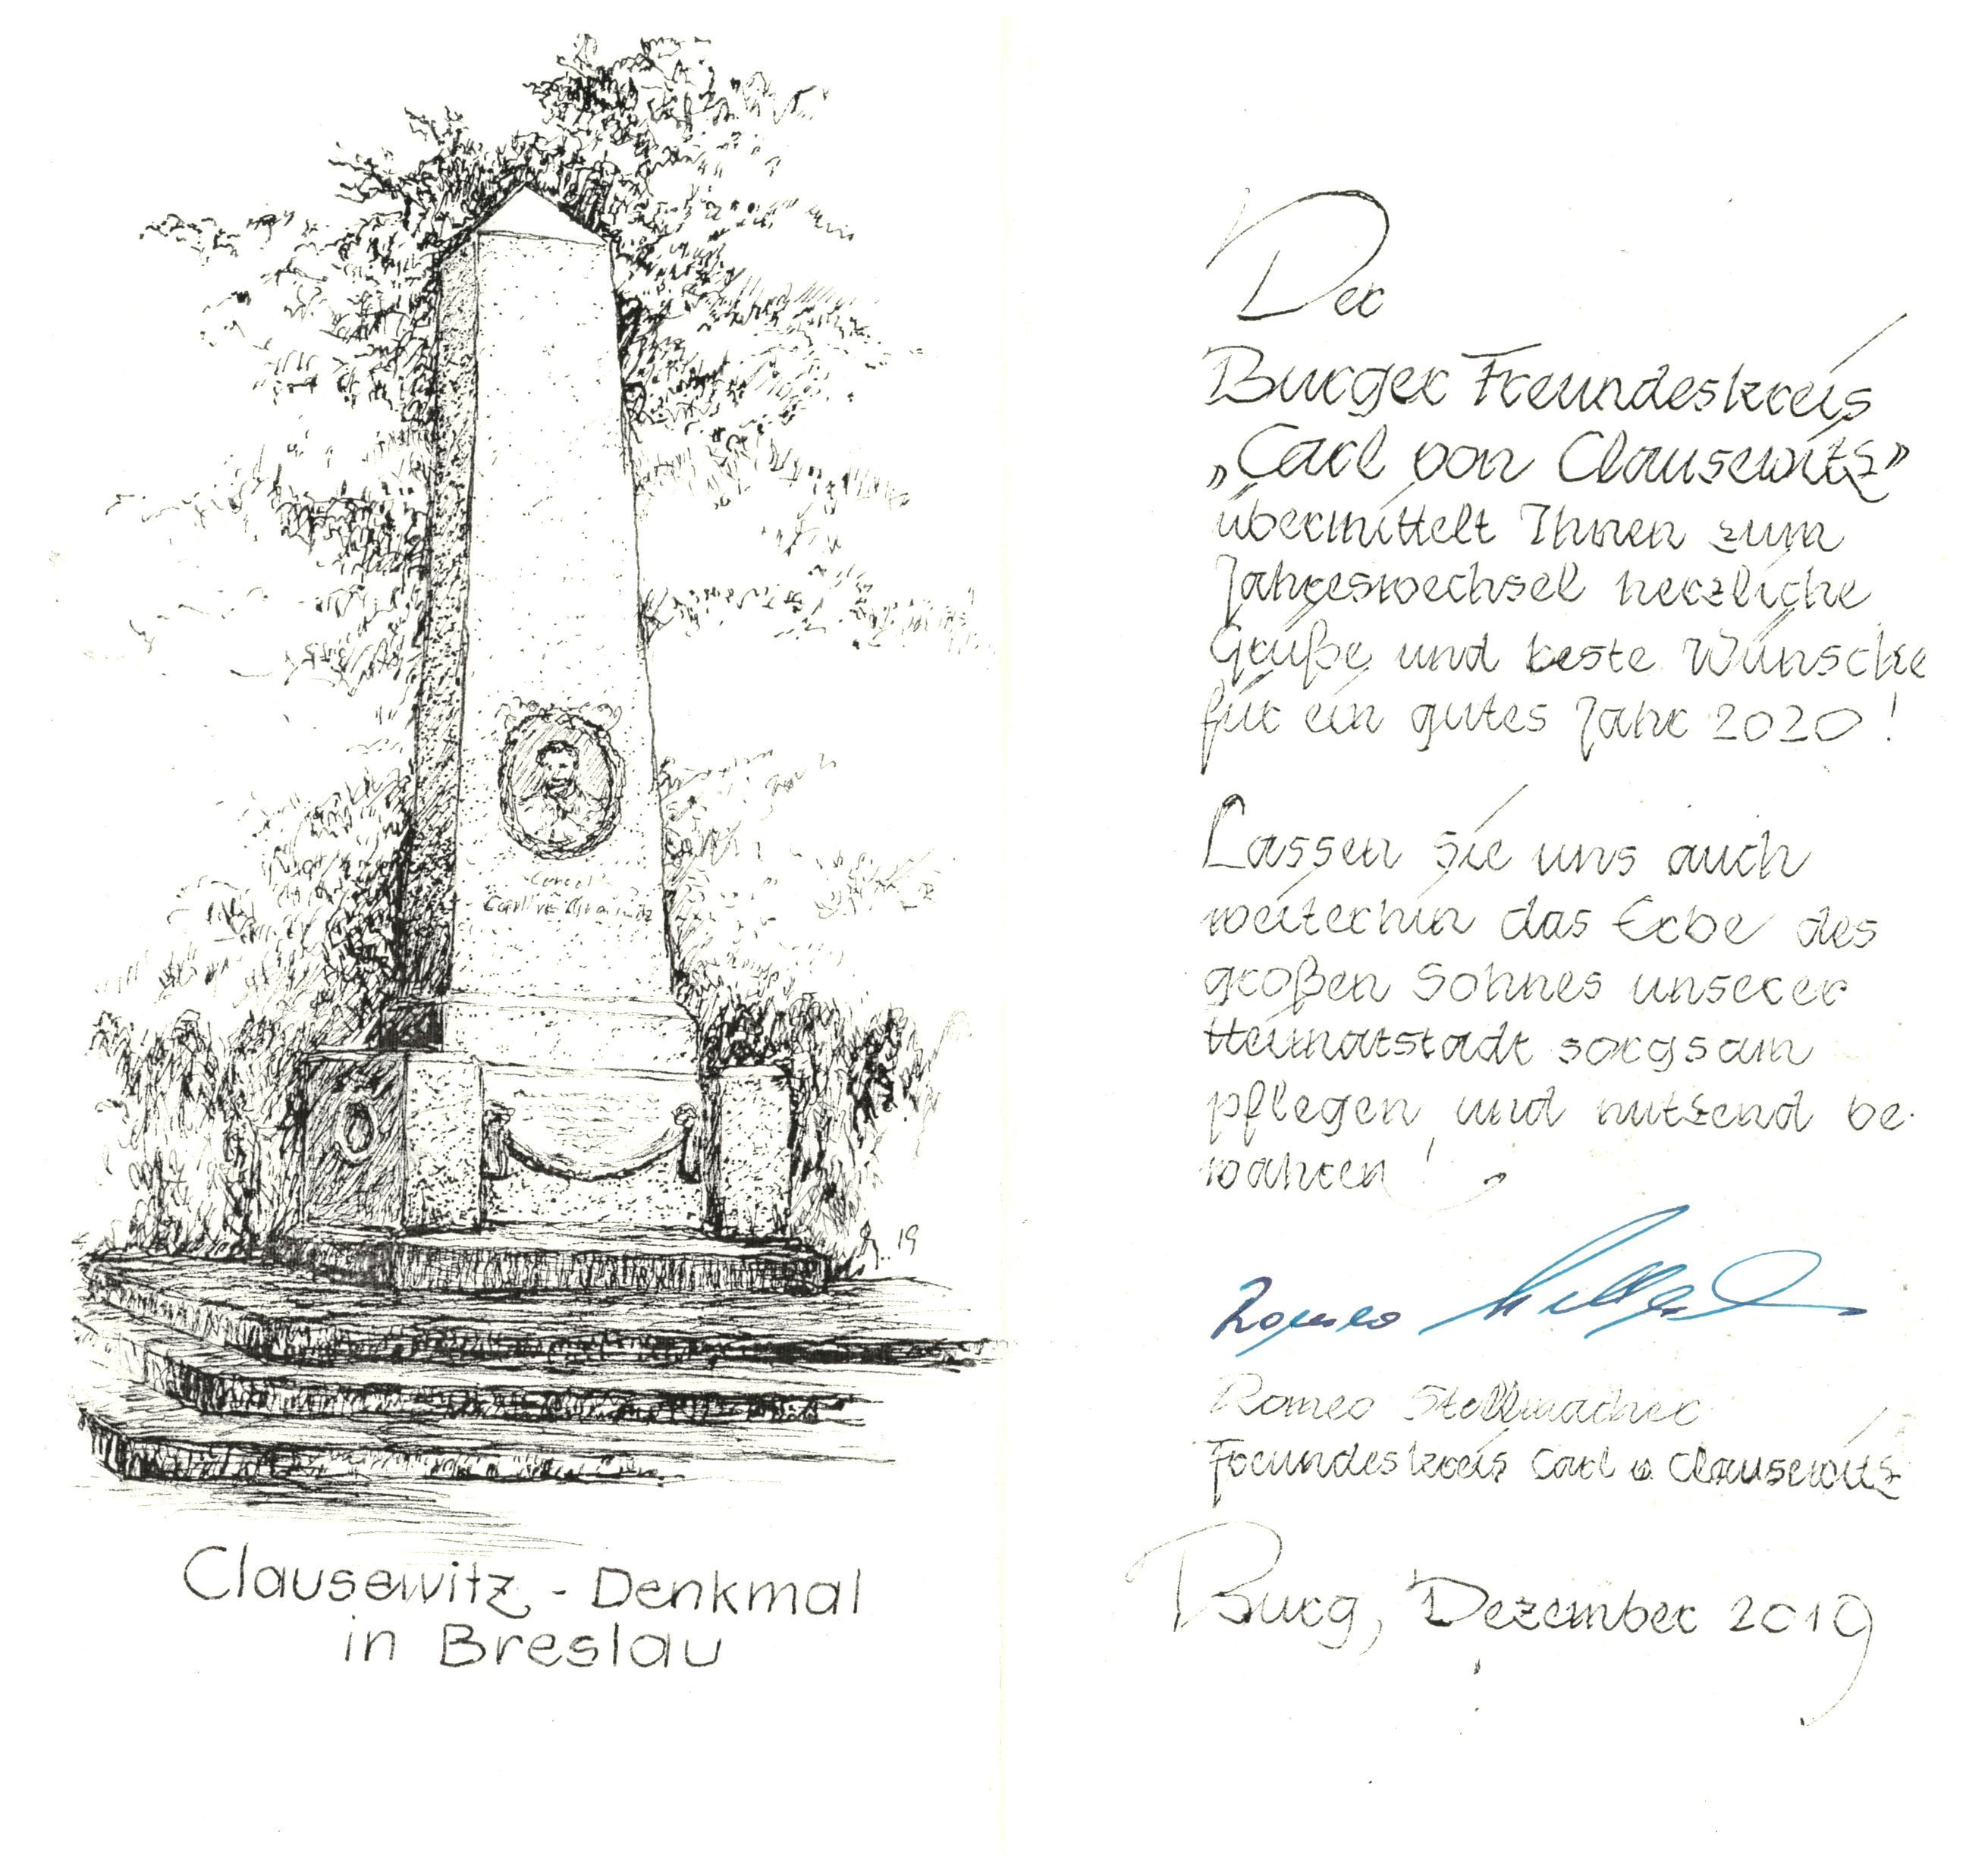 19
Clausewitz - Denkmal
in Breslau
Der
Burger Freundeskreis
„Carl von Clausewitz”
übermittelt Ihnen zum
Jahreswechsel herzliche
Grüße und beste Wünsche
für ein gutes Jahr 2020!
Lassen sie uns auch
weiterhin das Erbe des
großen Sohnes unserer
Heimatstadt sorgsam
pflegen und nutzend be-
wahren!
Romeo
Romeo Stellmacher
Freundeskreis Carl v. Clausewitz
Burg, Dezember 2019